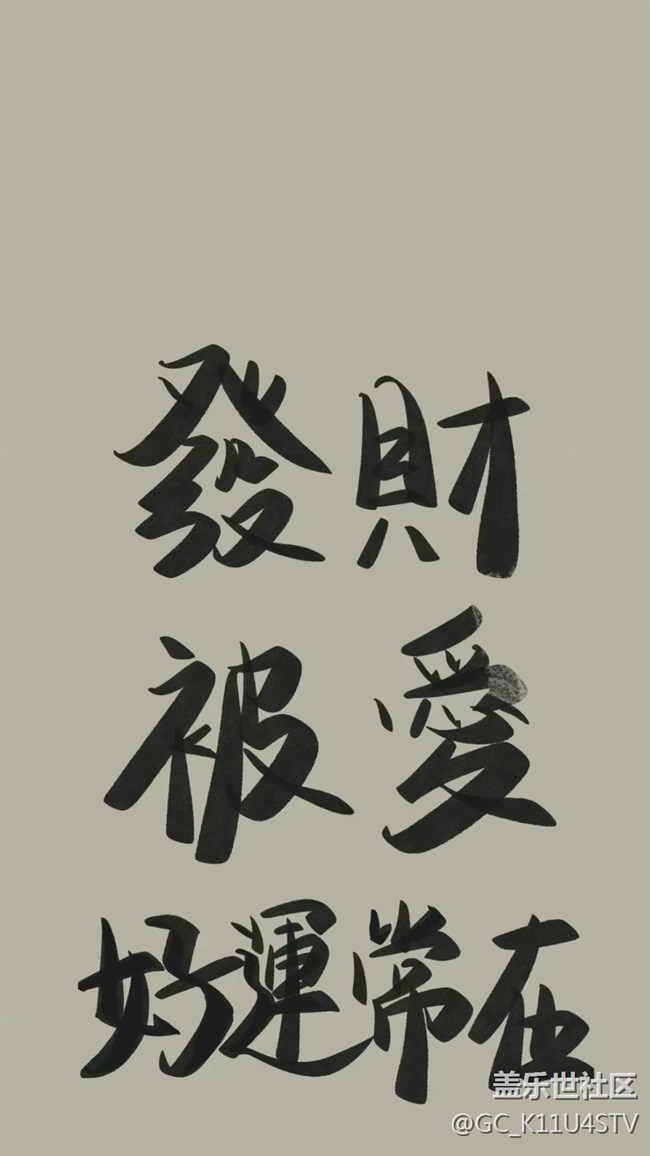 發財
被愛
好運常在
盖乐世社区
@GC_K11U4STV